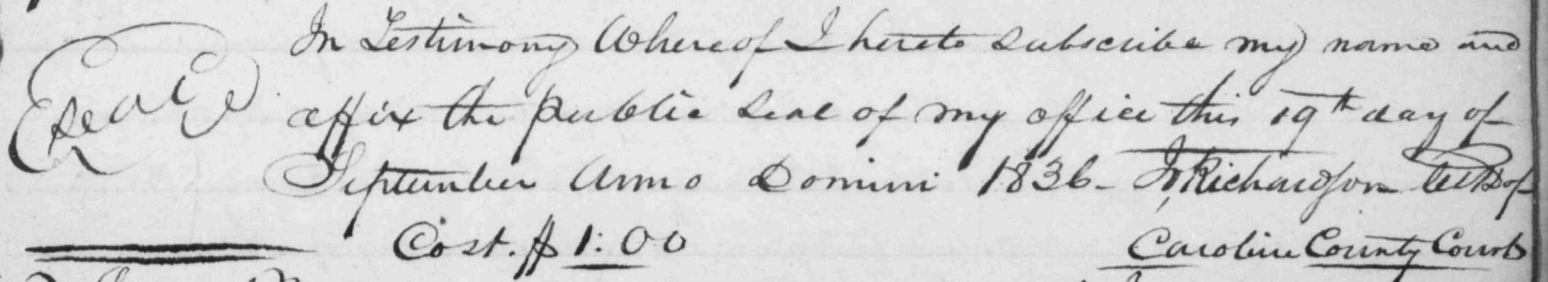 In Testimony Whereof I hereto subscribe my name and
Seal affix the public seal of my office this 19th day of
September Anno Domini 1836 - Jo Richardson Clk of
Cost. $1:00 Caroline County Court